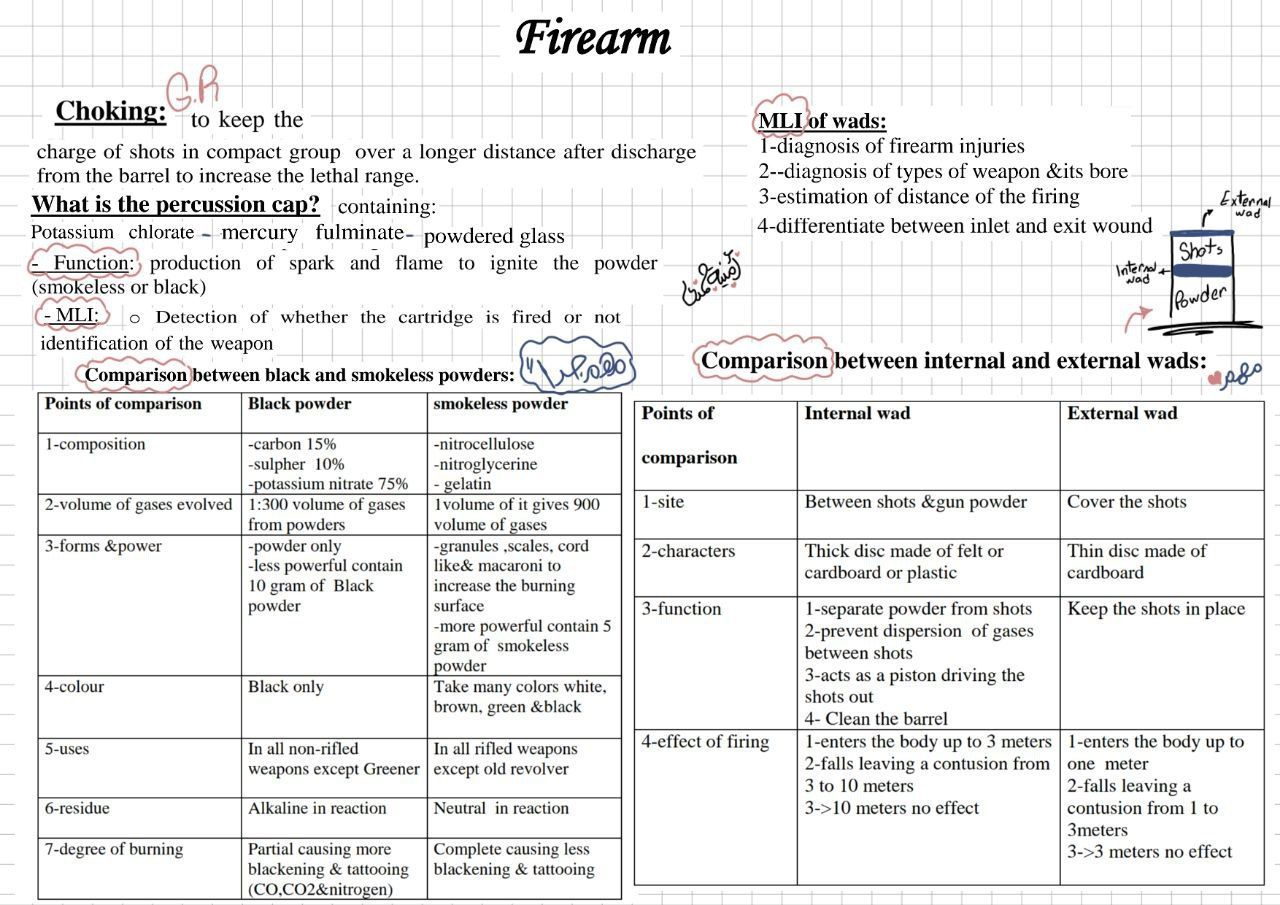 Firearm
Choking: G.R to keep the
charge of shots in compact group over a longer distance after discharge
from the barrel to increase the lethal range.
What is the percussion cap? containing:
Potassium chlorate - mercury fulminate- powdered glass
- Function: production of spark and flame to ignite the powder
(smokeless or black)
- MLI: o Detection of whether the cartridge is fired or not
identification of the weapon
Comparison between black and smokeless powders:
Points of comparison
Black powder
smokeless powder
1-composition
-carbon 15%
-sulpher 10%
-potassium nitrate 75%
-nitrocellulose
-nitroglycerine
- gelatin
2-volume of gases evolved
1:300 volume of gases
from powders
1volume of it gives 900
volume of gases
3-forms &power
-powder only
-less powerful contain
10 gram of Black
powder
-granules ,scales, cord
like& macaroni to
increase the burning
surface
-more powerful contain 5
gram of smokeless
powder
4-colour
Black only
Take many colors white,
brown, green &black
5-uses
In all non-rifled
weapons except Greener
In all rifled weapons
except old revolver
6-residue
Alkaline in reaction
Neutral in reaction
7-degree of burning
Partial causing more
blackening & tattooing
(CO,CO2&nitrogen)
Complete causing less
blackening & tattooing
MLI of wads:
1-diagnosis of firearm injuries
2--diagnosis of types of weapon &its bore
3-estimation of distance of the firing
4-differentiate between inlet and exit wound
External
wad
Shots
Internal
wad
Powder
Comparison between internal and external wads:
مهم
Points of
comparison
Internal wad
External wad
1-site
Between shots &gun powder
Cover the shots
2-characters
Thick disc made of felt or
cardboard or plastic
Thin disc made of
cardboard
3-function
1-separate powder from shots
2-prevent dispersion of gases
between shots
3-acts as a piston driving the
shots out
4- Clean the barrel
Keep the shots in place
4-effect of firing
1-enters the body up to 3 meters
2-falls leaving a contusion from
3 to 10 meters
3->10 meters no effect
1-enters the body up to
one meter
2-falls leaving a
contusion from 1 to
3meters
3->3 meters no effect